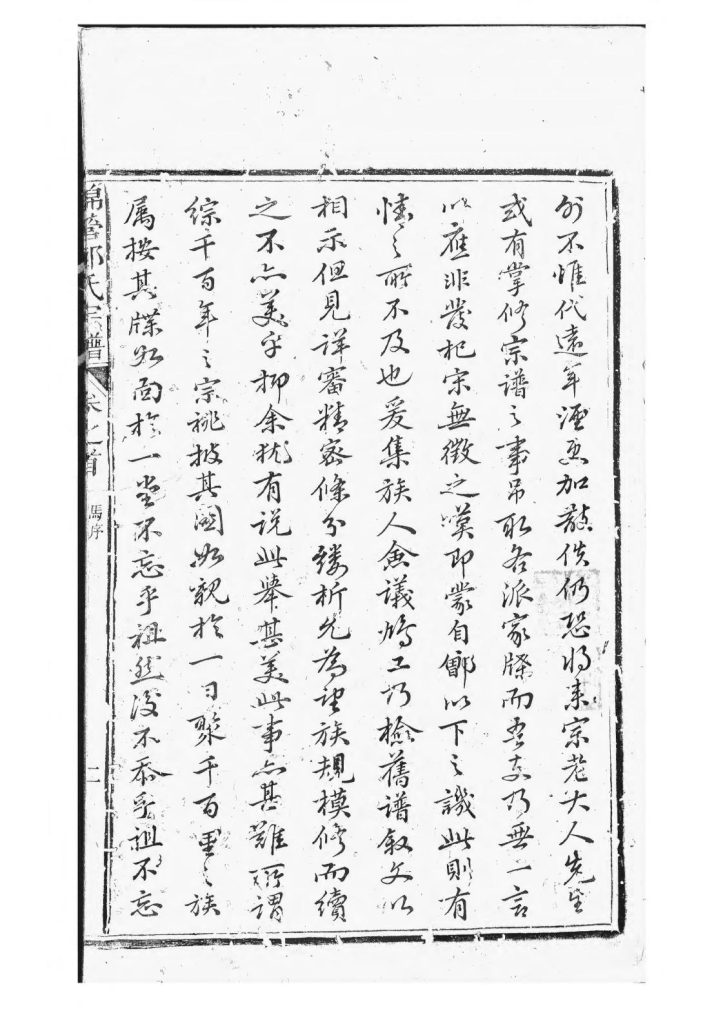 外不惟代遠年湮更加散佚仍恐將來宗老大人先生
或有掌修宗譜之事吊取各派家牒而吾支乃無一言
以應非發杞宋無徵之嘆即蒙自鄶以下之譏此則有
情之所不及也爰集族人僉議鳩工乃檢舊譜敘文以
相示但見詳審精密條分縷析允為望族規模修而續
之不亦美乎抑余猶有説此舉甚美此事亦甚難所謂
綜千百年之宗祧披其圖如親於一日聚千百里之族
屬按其牒如面於一堂不忘乎祖然後不忝乎祖不忘
錦營鄭氏宗譜 卷之首 馬序 二